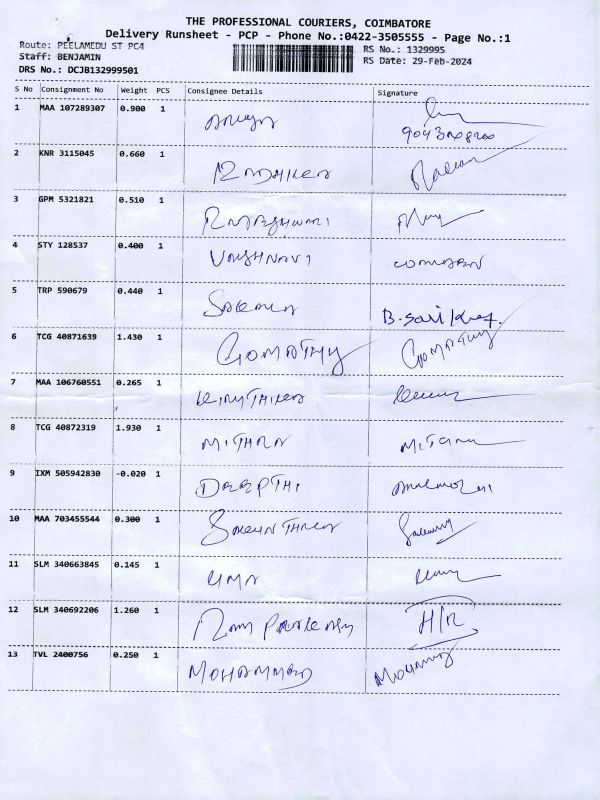 THE PROFESSIONAL COURIERS, COIMBATORE
Delivery Runsheet - PCP - Phone No.:0422-3505555 - Page No.:1
Route: PEELAMEDU ST PC4
RS No.: 1329995
Staff: BENJAMIN
RS Date: 29-Feb-2024
DRS No.: DCJB132999501
S No Consignment No Weight PCS Consignee Details Signature
1 MAA 107289307 0.900 1
2 KNR 3115045 0.660 1 RADHIKA
3 GPM 5321821 0.510 1
4 STY 128537 0.400 1 VAISHNAVI
5 TRP 590679 0.440 1
6 TCG 40871639 1.430 1 GOMATHY GOMATHY
7 MAA 106760551 0.265 1 KIRUTHIKA
8 TCG 40872319 1.930 1 MITHRA
9 IXM 505942830 -0.020 1 DEEPTHI
10 MAA 703455544 0.300 1
11 SLM 340663845 0.145 1 UMA
12 SLM 340692206 1.260 1 H/R
13 TVL 2400756 0.250 1 MOHAMMED